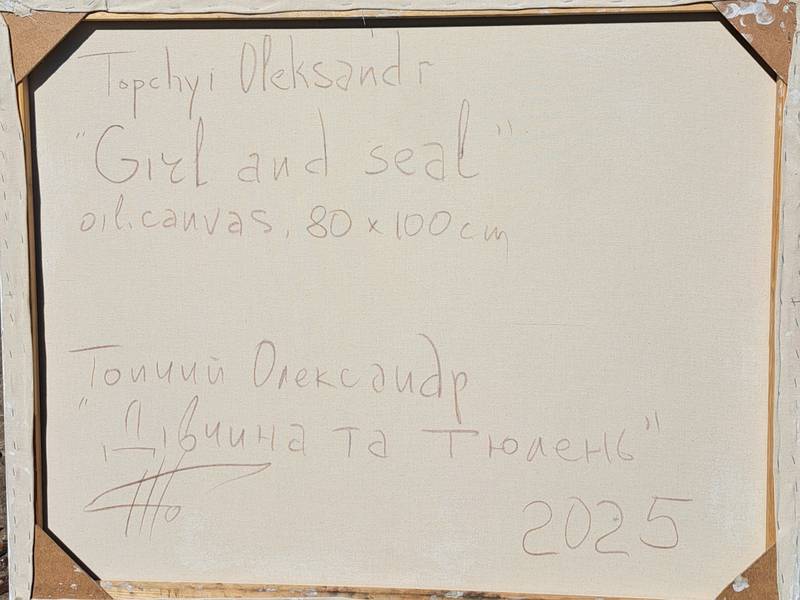 Topchyi Oleksandr
"Girl and seal"
oil.canvas, 80 x 100 cm
Топчий Олександр
"Дівчина та Тюлень"
2025